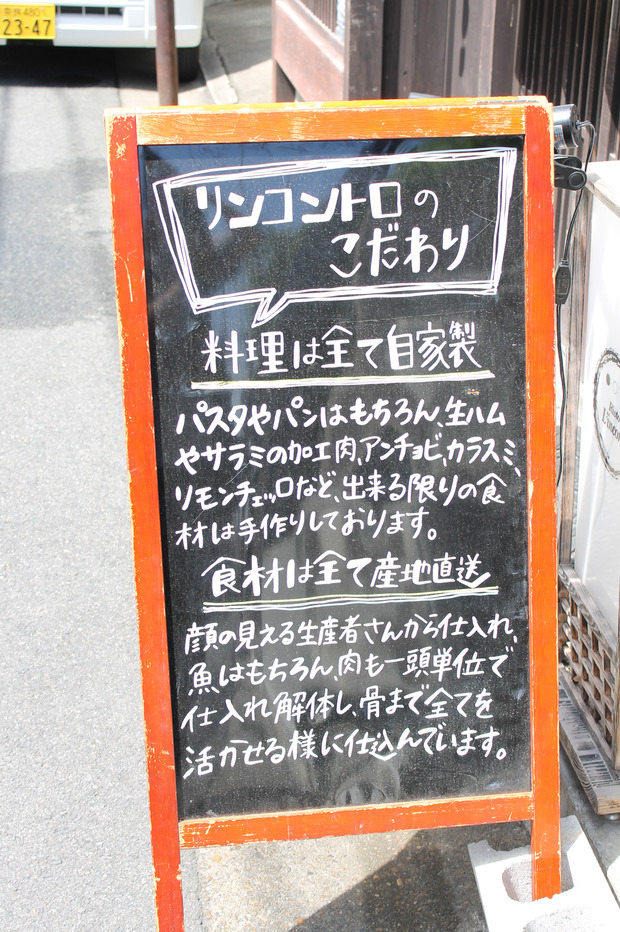 23-47
リンコントロの
こだわり
料理は全て自家製
パスタやパンはもちろん、生ハム
やサラミの加工肉、アンチョビ、カラスミ、
リモンチェッロなど、出来る限りの食
材は手作りしております。
食材は全て産地直送
顔の見える生産者さんから仕入れ、
魚はもちろん、肉も一頭単位で
仕入れ解体し、骨まで全てを
活かせる様に仕込んでいます。